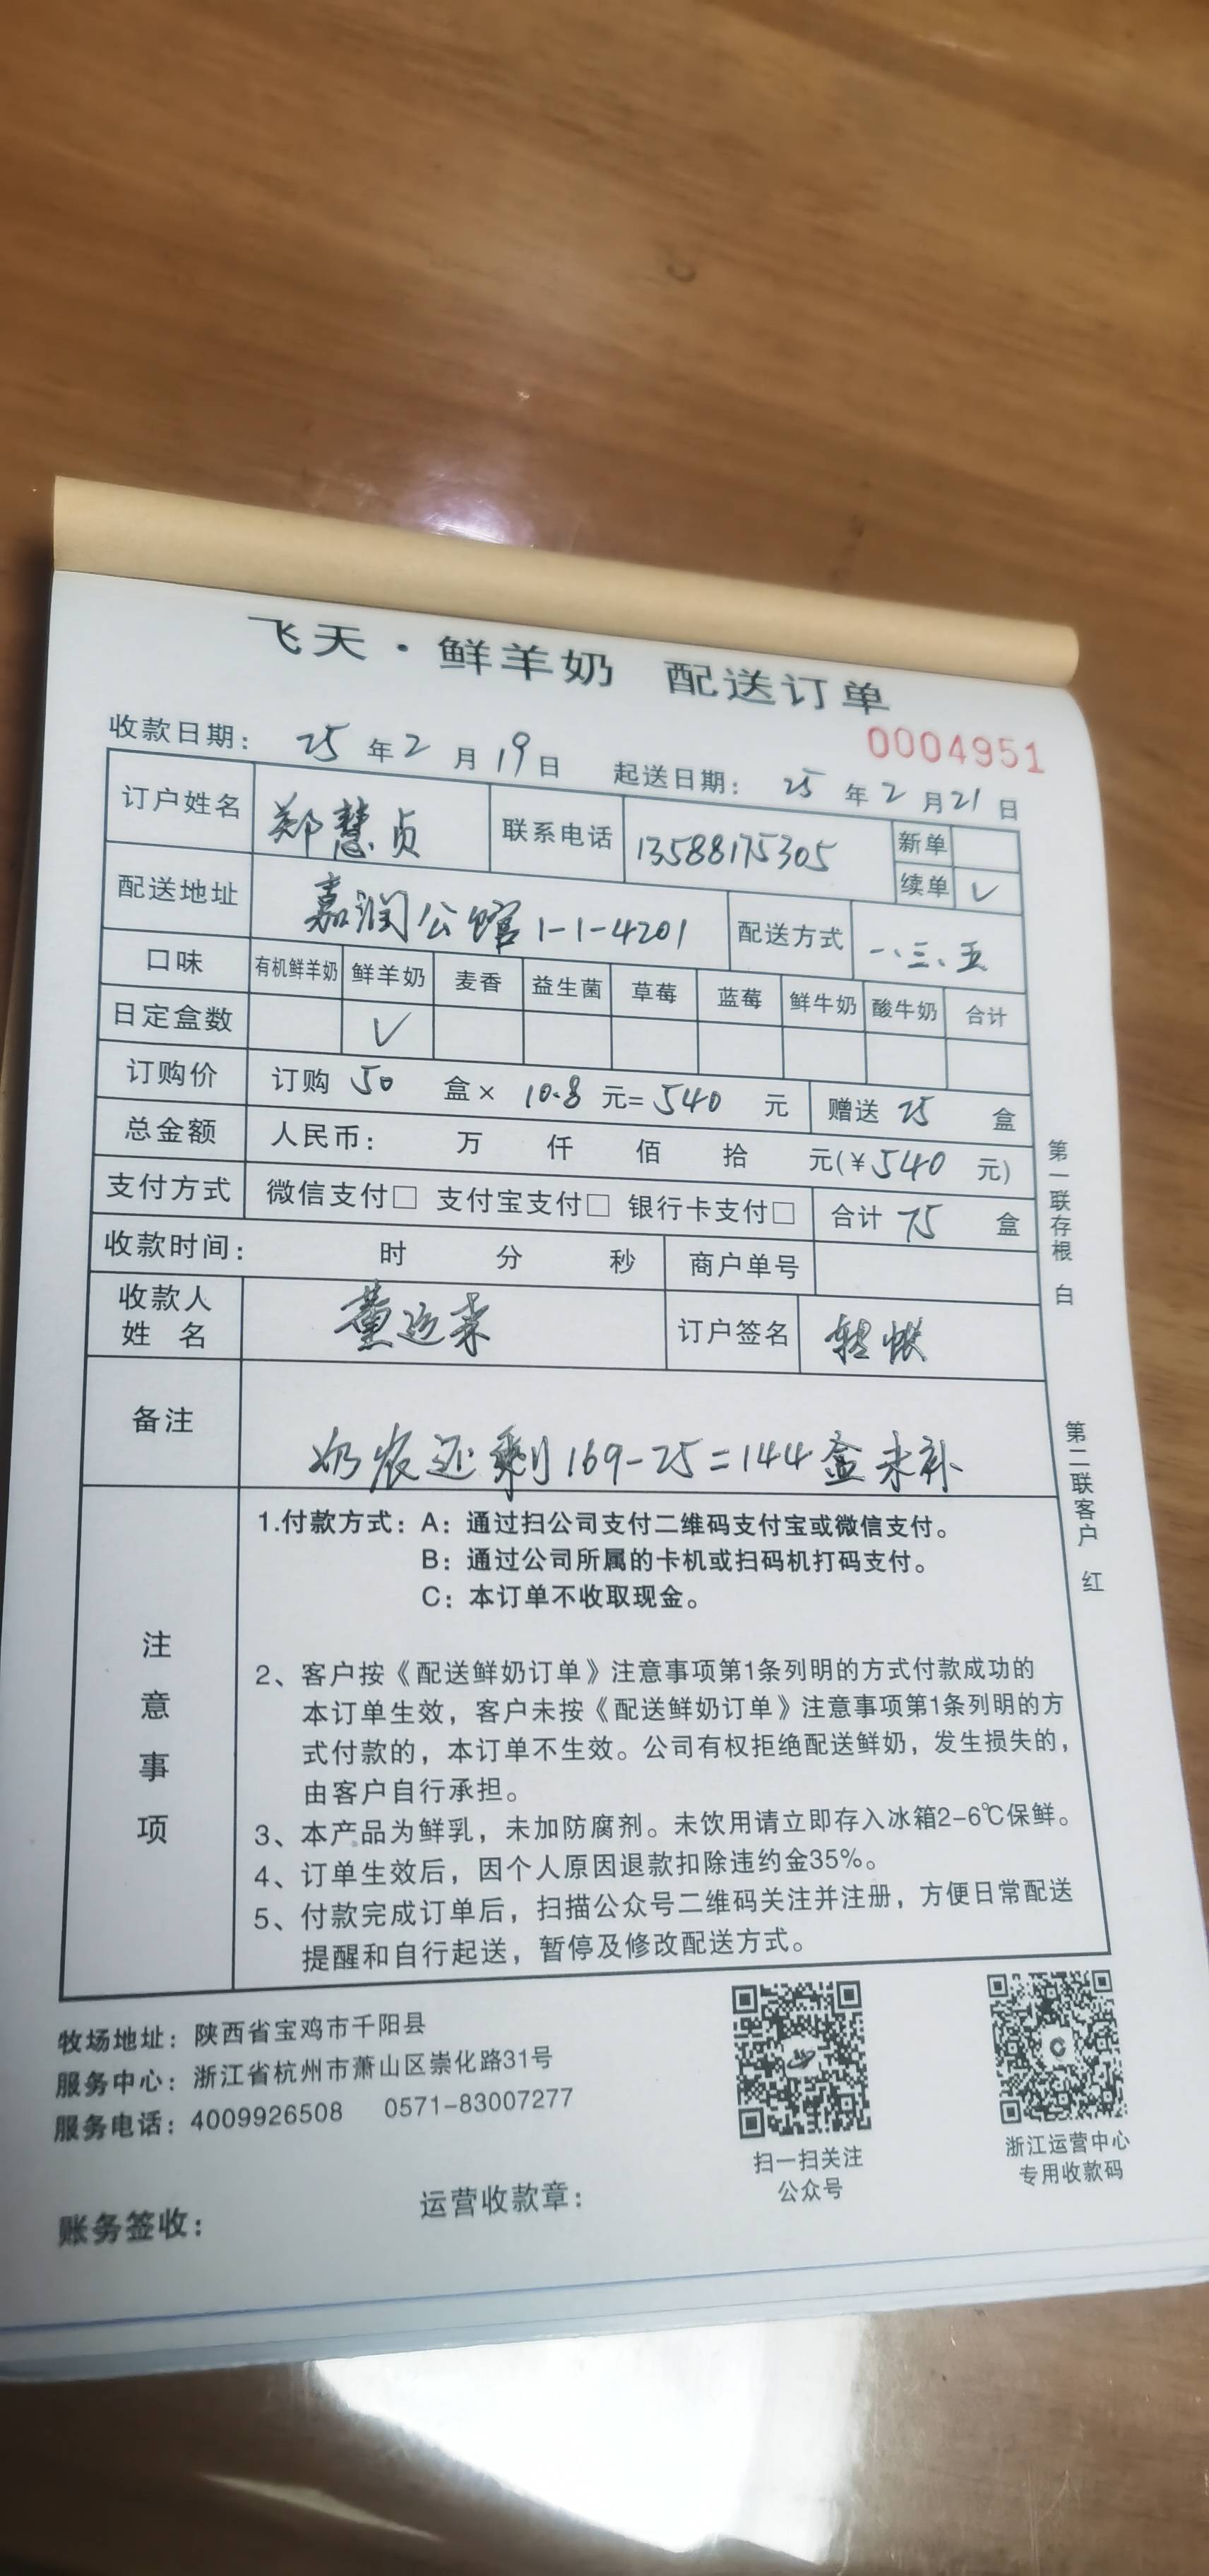 飞天·鲜羊奶 配送订单
0004951
收款日期: 25年2月19日 起送日期: 25年2月21日
订户姓名 郑慧贞 联系电话 13588175305 新单
续单 ✓
配送地址 嘉润公馆1-1-4201 配送方式 一、三、五
口味 有机鲜羊奶 鲜羊奶 麦香 益生菌 草莓 蓝莓 鲜牛奶 酸牛奶 合计
日定盒数 ✓
订购价 订购 50 盒× 10.8 元= 540 元 赠送 25 盒
总金额 人民币: 万 仟 佰 拾 元(¥540 元)
支付方式 微信支付□ 支付宝支付□ 银行卡支付□ 合计 75 盒
收款时间: 时 分 秒 商户单号
收款人
姓 名 董运来 订户签名
备注 奶农还剩169-25=144盒未补
注意事项
1.付款方式: A: 通过扫公司支付二维码支付宝或微信支付。
B: 通过公司所属的卡机或扫码机打码支付。
C: 本订单不收取现金。
2、客户按《配送鲜奶订单》注意事项第1条列明的方式付款成功的
本订单生效，客户未按《配送鲜奶订单》注意事项第1条列明的方
式付款的，本订单不生效。公司有权拒绝配送鲜奶，发生损失的，
由客户自行承担。
3、本产品为鲜乳，未加防腐剂。未饮用请立即存入冰箱2-6℃保鲜。
4、订单生效后，因个人原因退款扣除违约金35%。
5、付款完成订单后，扫描公众号二维码关注并注册，方便日常配送
提醒和自行起送，暂停及修改配送方式。
第一联存根 白
第二联客户 红
牧场地址: 陕西省宝鸡市千阳县
服务中心: 浙江省杭州市萧山区崇化路31号
服务电话: 4009926508 0571-83007277
扫一扫关注
公众号
浙江运营中心
专用收款码
账务签收: 运营收款章: